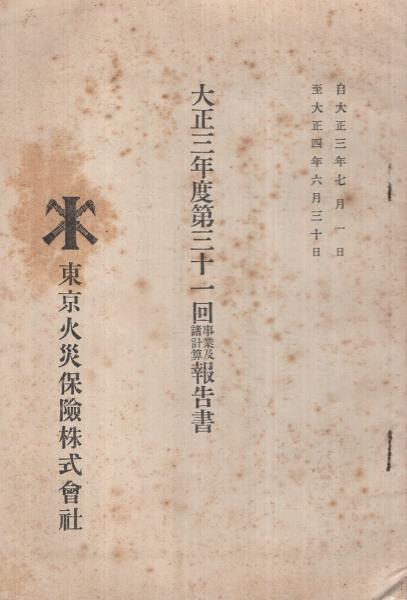 自大正三年七月一日
至大正四年六月三十日
大正三年度第三十一回事業及諸計算報告書
東京火災保險株式會社